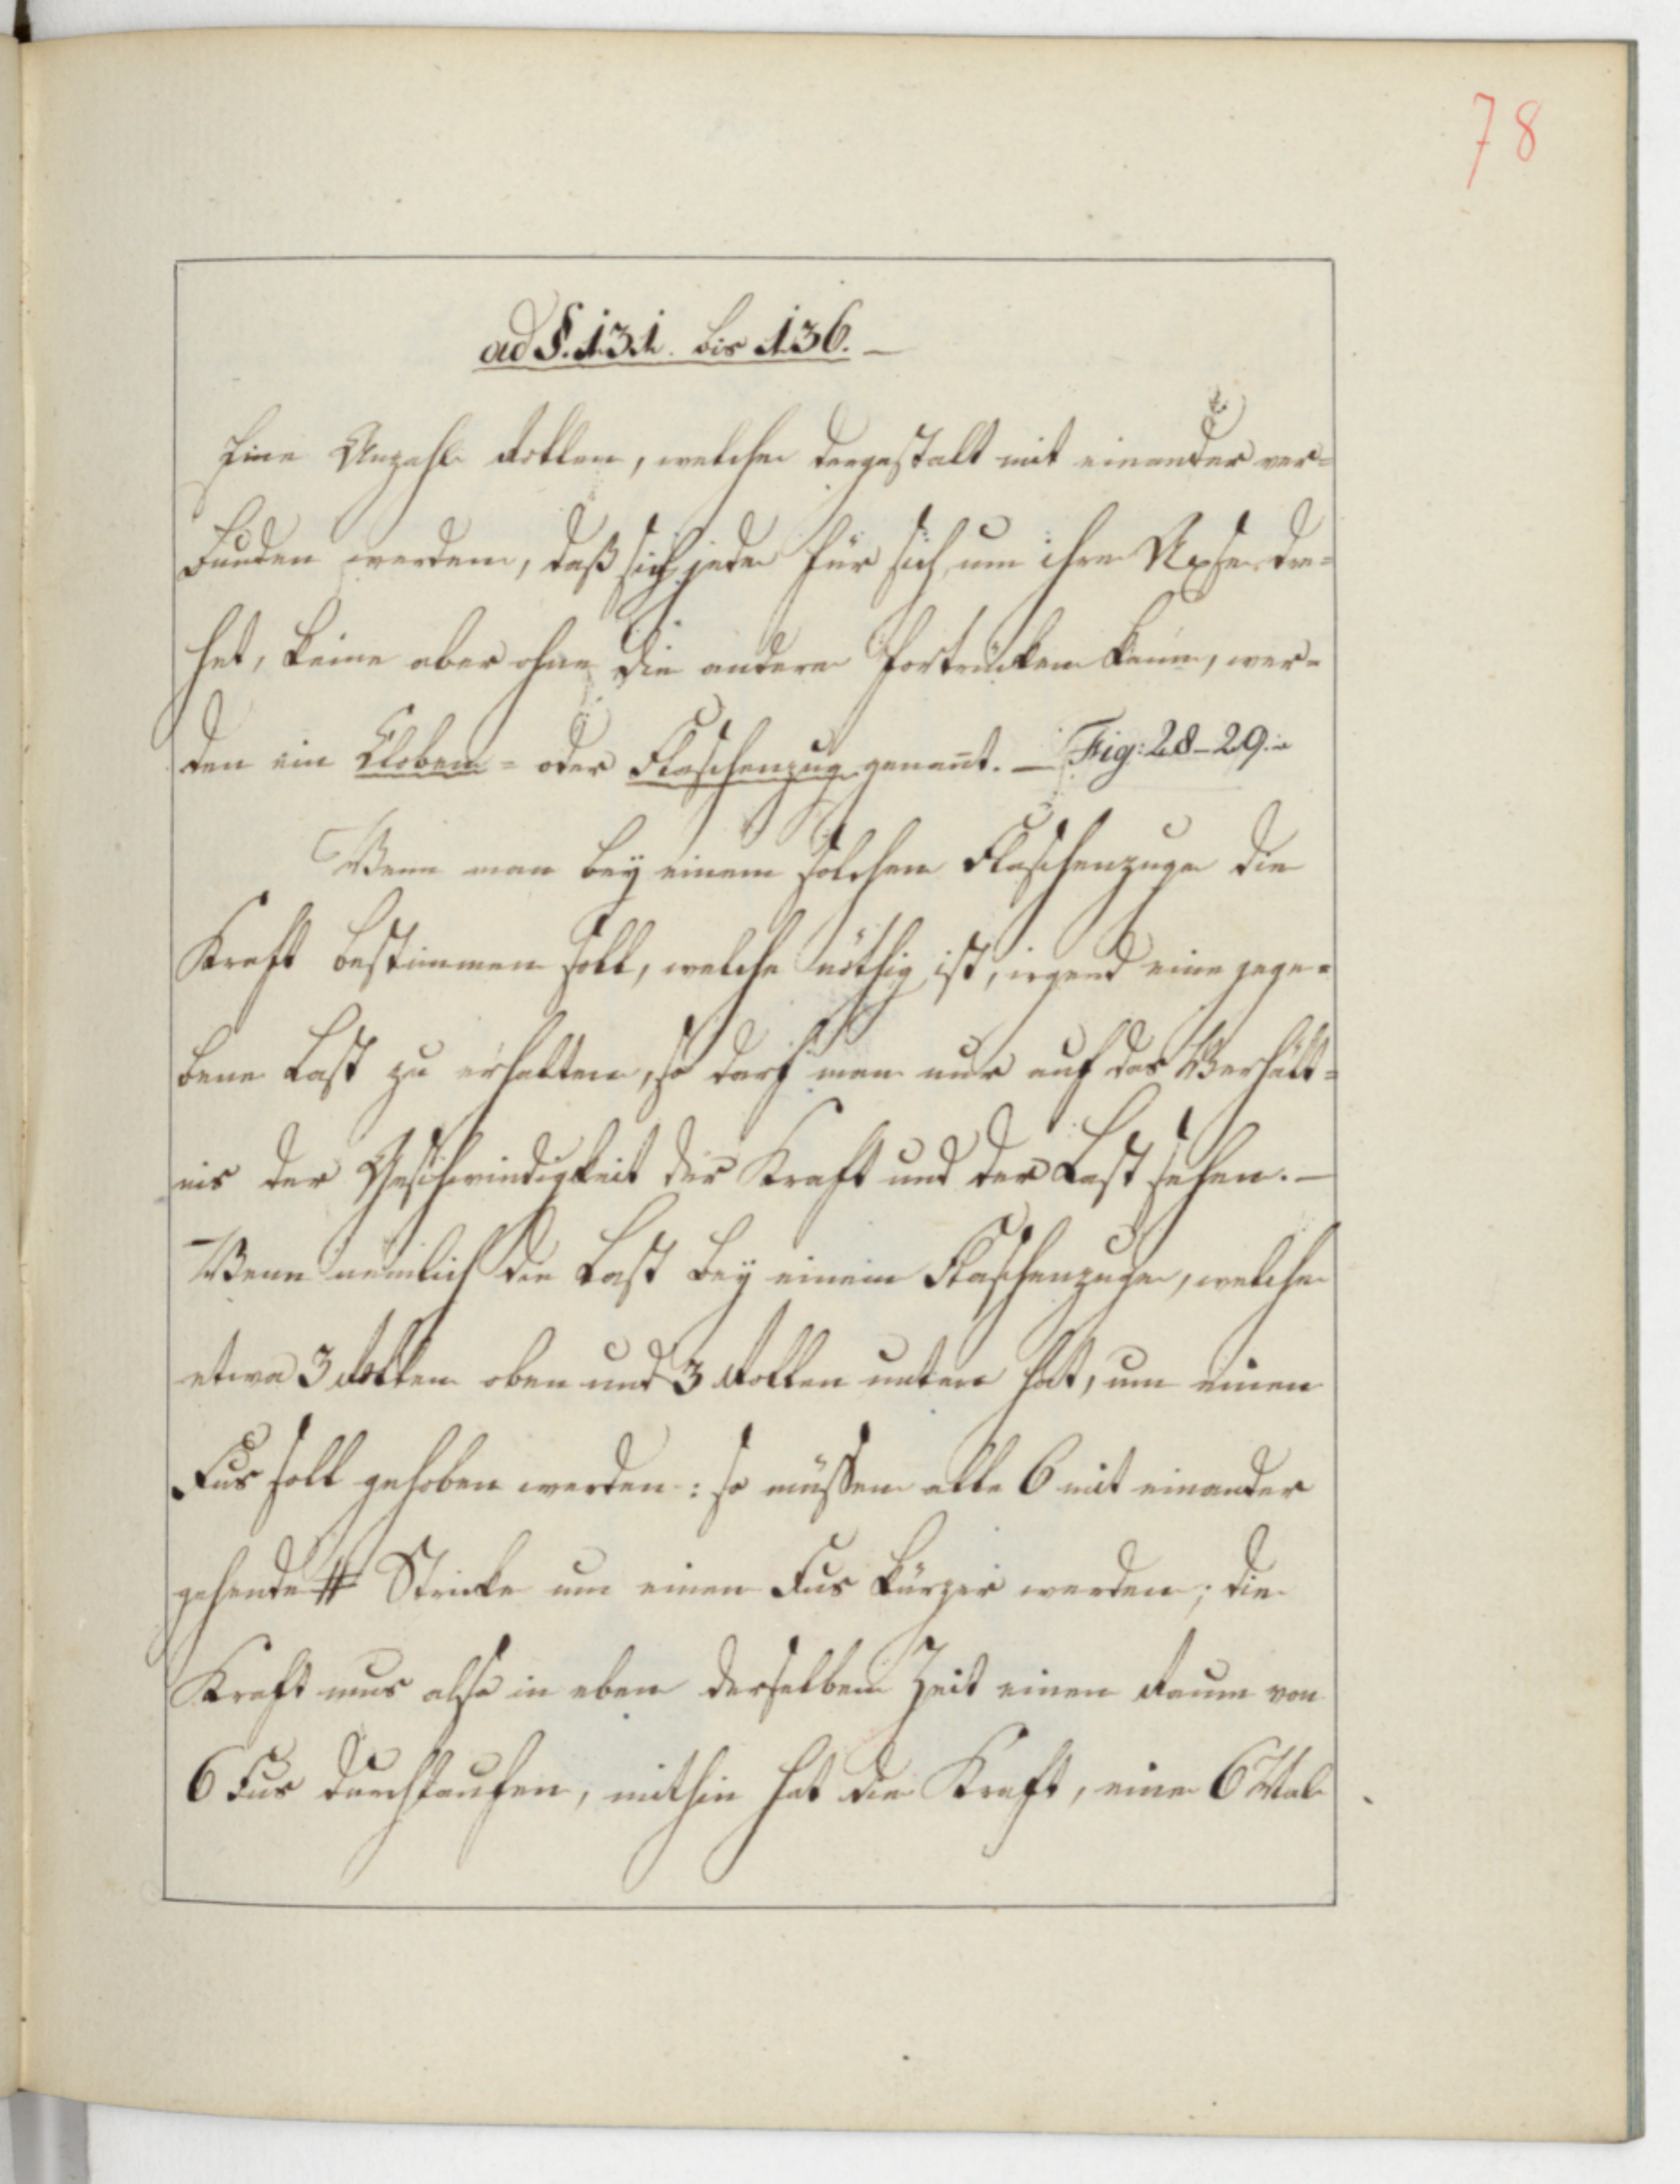 78
ad §. 131. bis 136. —
Eine Anzahl Rollen, welche dergestalt mit einander ver=
bunden werden, daß sich jede für sich um ihre Axse dre=
het, keine aber ohne die andere fortrücken kann, wer=
den ein Kloben= oder Flaschenzug genan̄t. — Fig: 28-29.
Wenn man bey einem solchen Flaschenzuge die
Kraft bestimmen soll, welche nöthig ist, irgend eine gege=
bene Last zu erhalten, so darf man nur auf das Verhält=
nis der Geschwindigkeit der Kraft und der Last sehen. —
Wenn nemlich die Last bey einem Flaschenzuge, welcher
etwa 3 Rollen oben und 3 Rollen unten hat, um einen
Fus soll gehoben werden: so müssen alle 6 mit einander
gehende Stricke um einen Fus kürzer werden; die
Kraft mus also in eben derselben Zeit einen Raum von
6 Fus durchlaufen, mithin hat die Kraft, eine 6 Mal